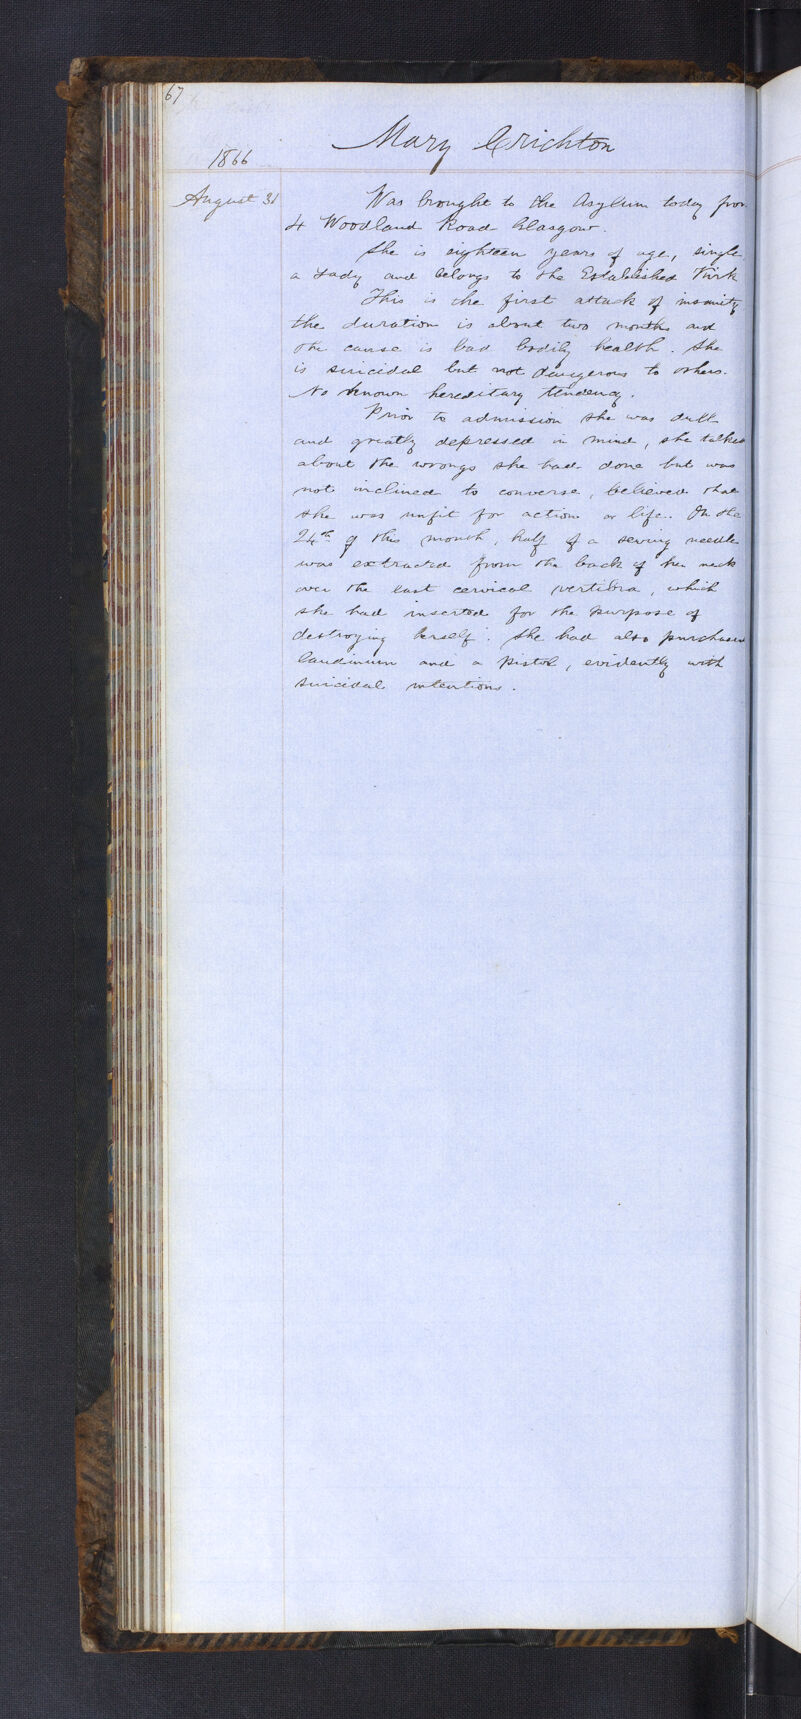 67
Mary Crichton
1866
August 31 Was brought to the Asylum today from
4 Woodland Road Glasgow.
She is eighteen years of age, single
a Lady and belongs to the Established Kirk
This is the first attack of insanity
the duration is about two months and
the cause is bad bodily health. She
is suicidal but not dangerous to others.
No known hereditary tendency.
Prior to admission she was dull
and greatly depressed in mind, she talked
about the wrongs she had done but was
not inclined to converse, believed that
she was unfit for action or life. On the
24th of this month, half of a sewing needle
was extracted from the back of her neck
over the last cervical vertibra, which
she had inserted for the purpose of
destroying herself. She had also purchased
laudinum and a pistol, evidently with
suicidal intentions.